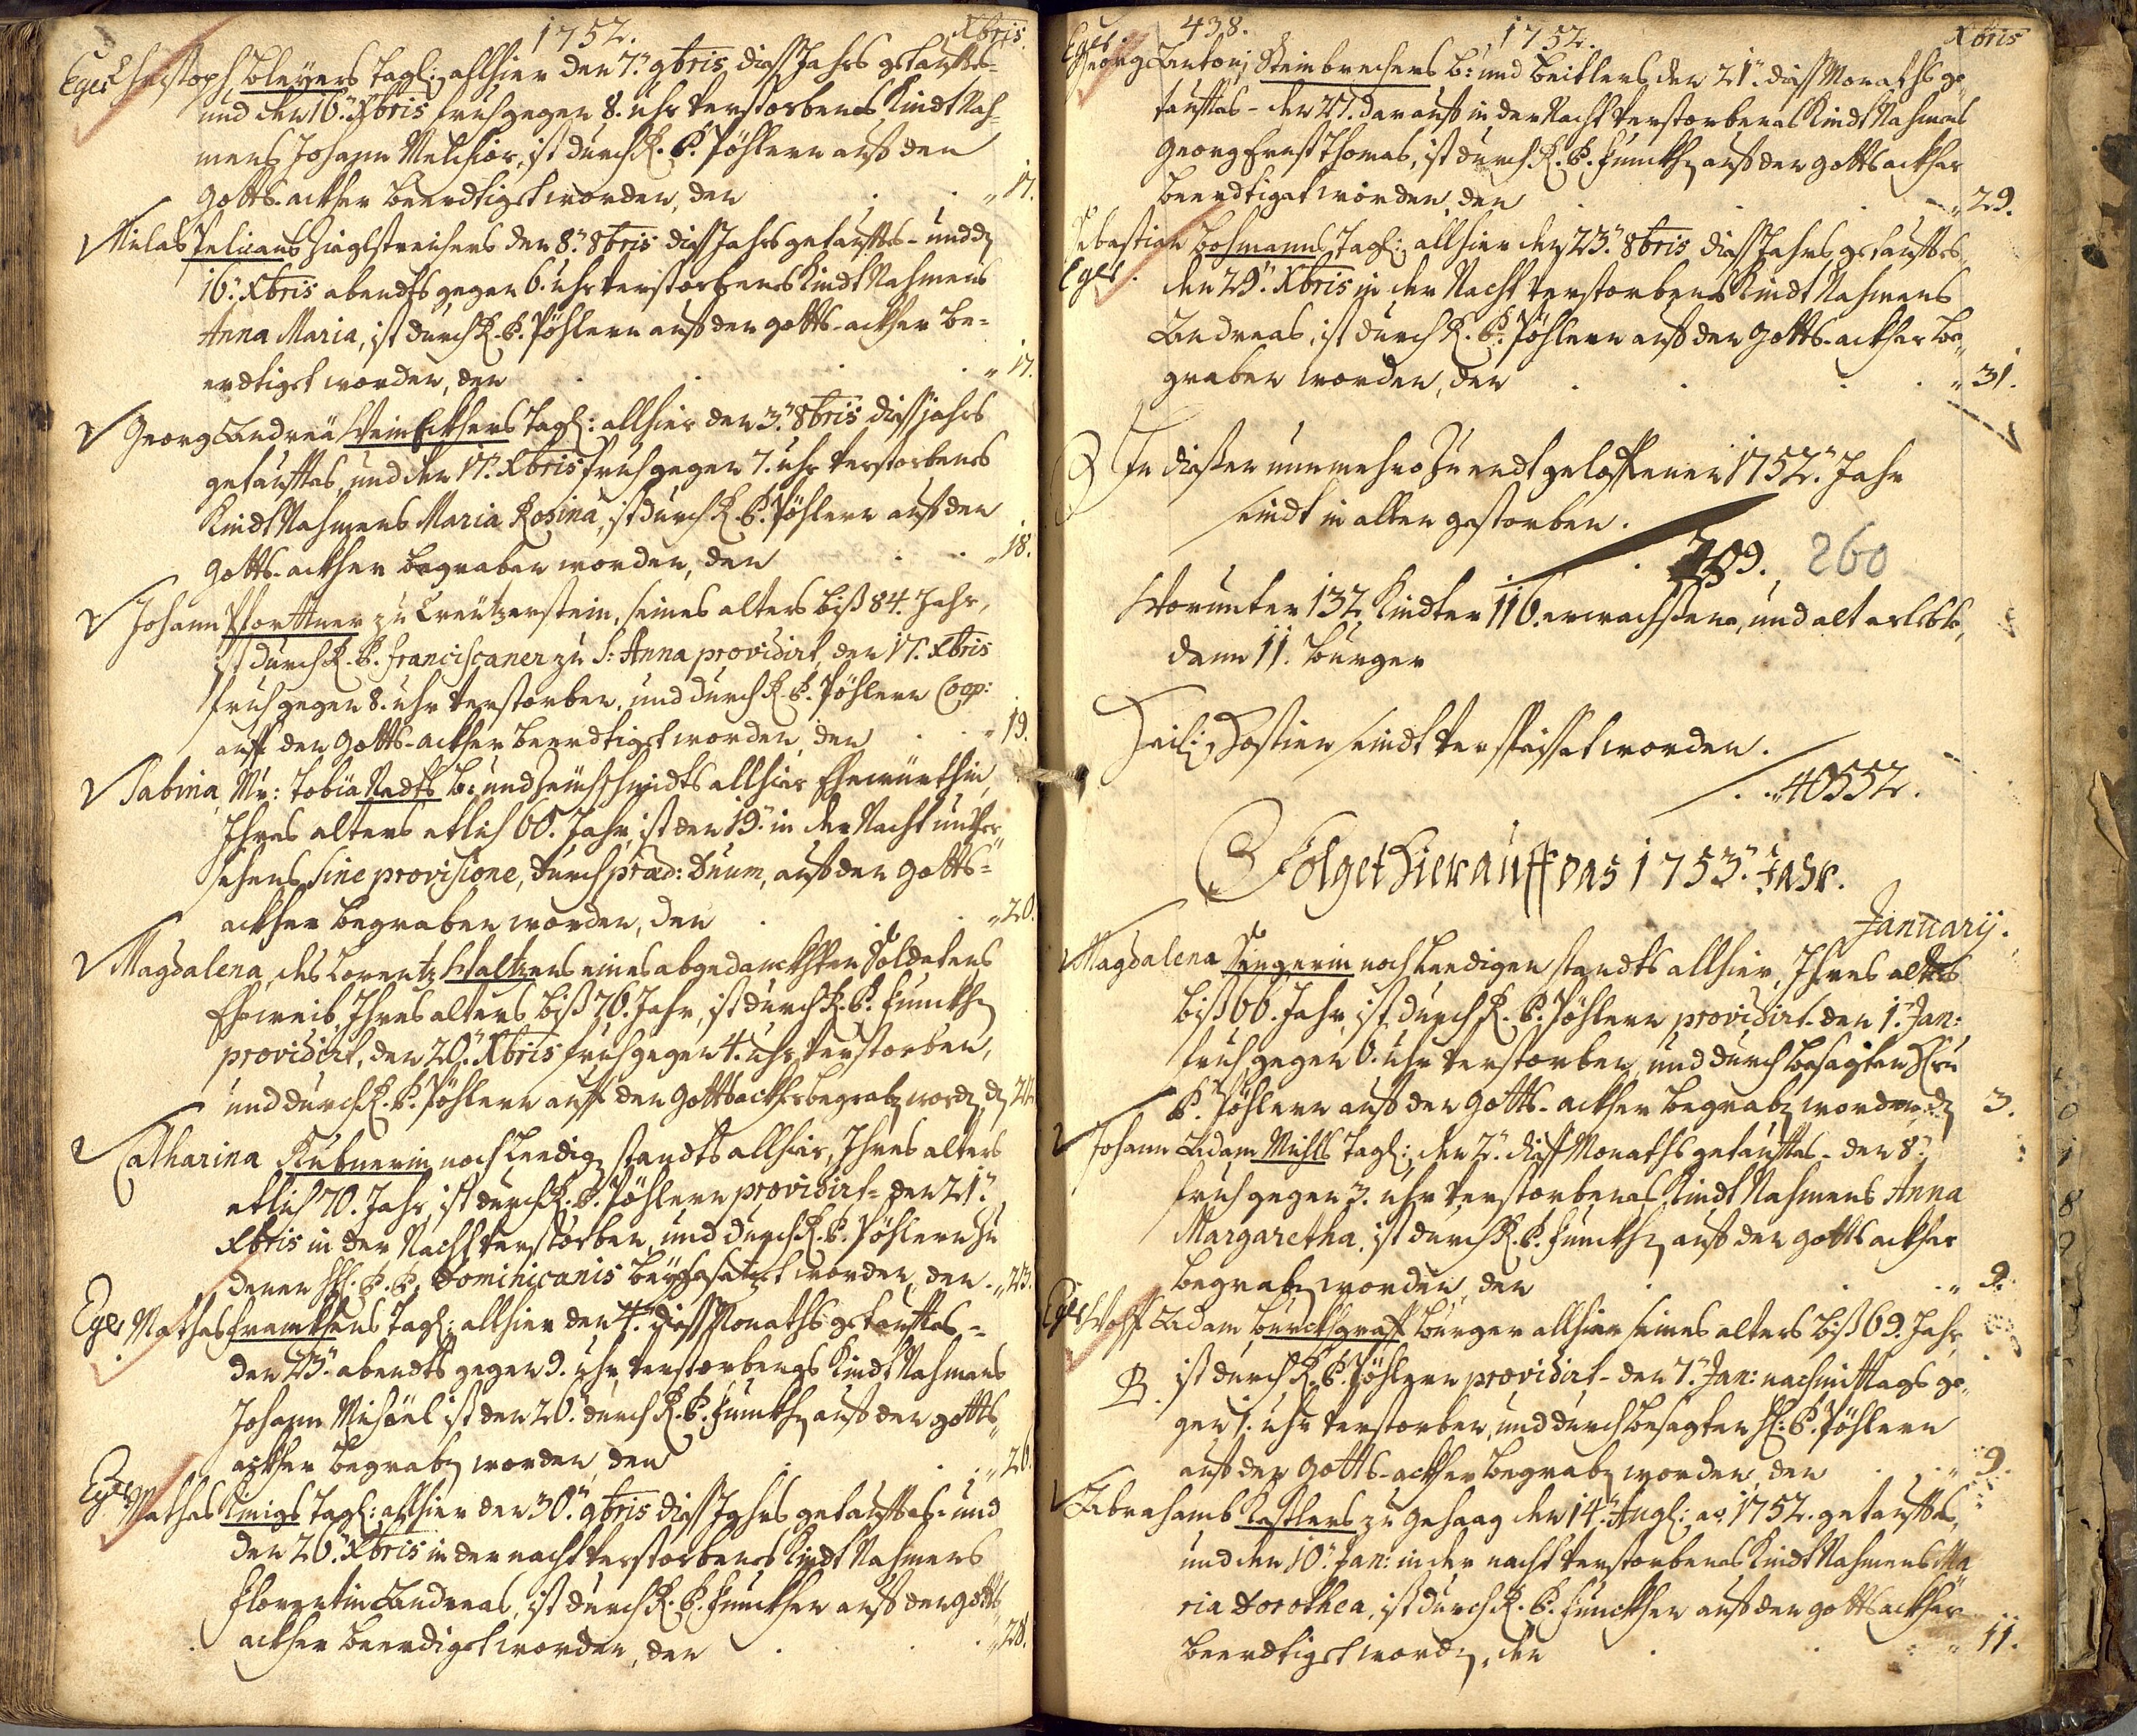 1752. Xbris.
Eger Christoph Bleyers Tagl: allhier den 7.t 9bris diesß Jahrs getaufftes-
und den 16.t Xbris fruh gegen 8. uhr verstorbenes Kindt Nah-
mens Johann Melchior, ist durch H. P. Pöhlern auff den
gotts-ackher beerdtiget worden, den . . „ 17.
Niclas Pelicans Zieglstreichers den 8.t 8bris diesß Jahrs getaufftes- und dn
16.t Xbris abendts gegen 6. uhr verstorbenes Kindt Nahmens
Anna Maria, ist durch H. P. Pöhlern auff den gotts-ackher be-
erdtiget worden, den . . . „ 17.
Georg Andreä Weinlckhers Tagl: allhier den 3.t 8bris diesß jahrs
getaufftes, und den 17.t Xbris fruh gegen 7. uhr verstorbenes
Kindt Nahmens Maria Rosina, ist durch H. P. Pöhlern auff den
gotts-ackher begraben worden, den . . „ 18.
Johann Pforttner zu Creützerstein, seines alters biß 84. Jahr,
ist durch H. P. Franciscaner zu S: Anna providirt, den 17. Xbris
fruh gegen 8. uhr verstorben, und durch H. P. Pöhlern Coop:
auff den gotts-ackher beerdtiget worden, den . . „ 19.
Sabina, Mr: Tobiä Nadts b: und Zeüchschmidts allhier Ehewürthin,
Ihres alters etlich 60. Jahr, ist den 19.t in der Nacht unver-
sehens sine provisione, durch præd: Dnum, auff den gotts-
ackher begraben worden, den . . . „ 20.
Magdalena, des Lorentz Waltzers eines abgedanckhten Soldatens
Eheweib, Ihres alters biß 76. Jahr, ist durch H. P. Funckhn
providirt, den 20.t Xbris fruh gegen 4. uhr verstorben,
und durch H. P. Pöhlern auff den gottsackher begrabn wordn, dn 22.
Catharina Kubnerin noch leedign standts allhier, Ihres alters
etlich 70. Jahr, ist durch H. P. Pöhlern providirt- den 21.t
Xbris in der Nacht verstorben, und durch H. P. Pöhlern zu
denen HH. P. P. Dominicanis beygesatzet worden, den . „ 23.
Eger Mathes Franckhens Tagl: allhier den 4.t diesß Monaths getaufftes-
den 23.t abendts gegen 9. uhr verstorbenes Kindt Nahmens
Johann Michäel ist den 26.t durch H. P. Funckhn auff den gotts
ackher begrabn worden, den . . „ 26.
Eger Mathes Linigs Tagl: allhier den 30.t 9bris diesß Jahrs getaufftes- und
den 26.t Xbris in der nacht verstorbenes Kindt Nahmens
Florentin Andreas, ist durch H. P. Funckhen auff den gotts
ackher beerdiget worden, den . . . „ 28.
438. 1752. Xbris
Eger.
Georg Antonj Steinbrechers b: und beitlers den 21.t diesß Monaths ge-
taufftes- den 27. darauff in der Nacht verstorbenes Kindt Nahmens
Georg Ernst Thomas, ist durch H. P. Funckhn auff den gottsackher
beerdtiget worden, den . . . „ 29.
Sebastian Bohmanns Tagl: allhier den 23.t 8bris diesß Jahrs getaufftes
Eger. den 29.t Xbris in der Nacht verstorbenes Kindt Nahmens
Andreas, ist durch H. P. Pöhlern auff den gotts-ackher be-
graben worden, den . . . . „ 31.
In diesen nunmehro zu endt geloffenen 1752.t Jahr
seindt in allen gestorben.
209. 260
Worunter 132. Kindter 116. erwachsene, und alt erlebte,
dann 11. Burger
Heil: Hostien seindt verspeisset worden.
. . 40552.
Folget hierauff das 1753.t Jahr.
Januarij.
Magdalena Sengerin noch leedigen standts allhier, Ihres alters
biß 66. Jahr, ist durch H. P. Pöhlern providirt- den 1.t Jan:
fruh gegen 6. uhr verstorben, und durch besagten Hrn
P. Pöhlern auff den gotts-ackher begrabn worden, dn 3.
Johann Adam Michls Tagl: den 2.t diesß Monaths getaufftes- den 8.t
fruh gegen 3. uhr verstorbenes Kindt Nahmens Anna
Margaretha, ist durch H. P. Funckhn auff den gottsackher
begrabn worden, den . . „ 9.
Eger Wolff Adam Burckhgraff Burger allhier seines alters biß 69. Jahr,
B. ist durch H. P. Pöhlern providirt- den 7.t Jan: nachmittags ge-
gen 1. uhr verstorben, und durch besagten H: P. Pöhlern
auff den gotts-ackher begrabn worden, den . . „ 9.
Abrahamb Kastlers zu gehaag den 14.t Augl: ao. 1752. getaufftes,
und den 10.t Jan: in der nacht verstorbenes Kindt Nahmens Ma
ria Dorothea, ist durch H. P. Funckhen auff den gottsackher
beerdtiget wordn, den . . . „ 11.